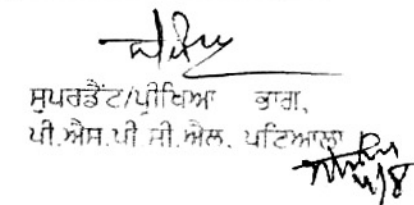 ਸੁਪਰਡੈਂਟ/ਪ੍ਰੀਖਿਆ ਭਾਗ,
ਪੀ.ਐਸ.ਪੀ ਸੀ.ਐਲ. ਪਟਿਆਲਾ